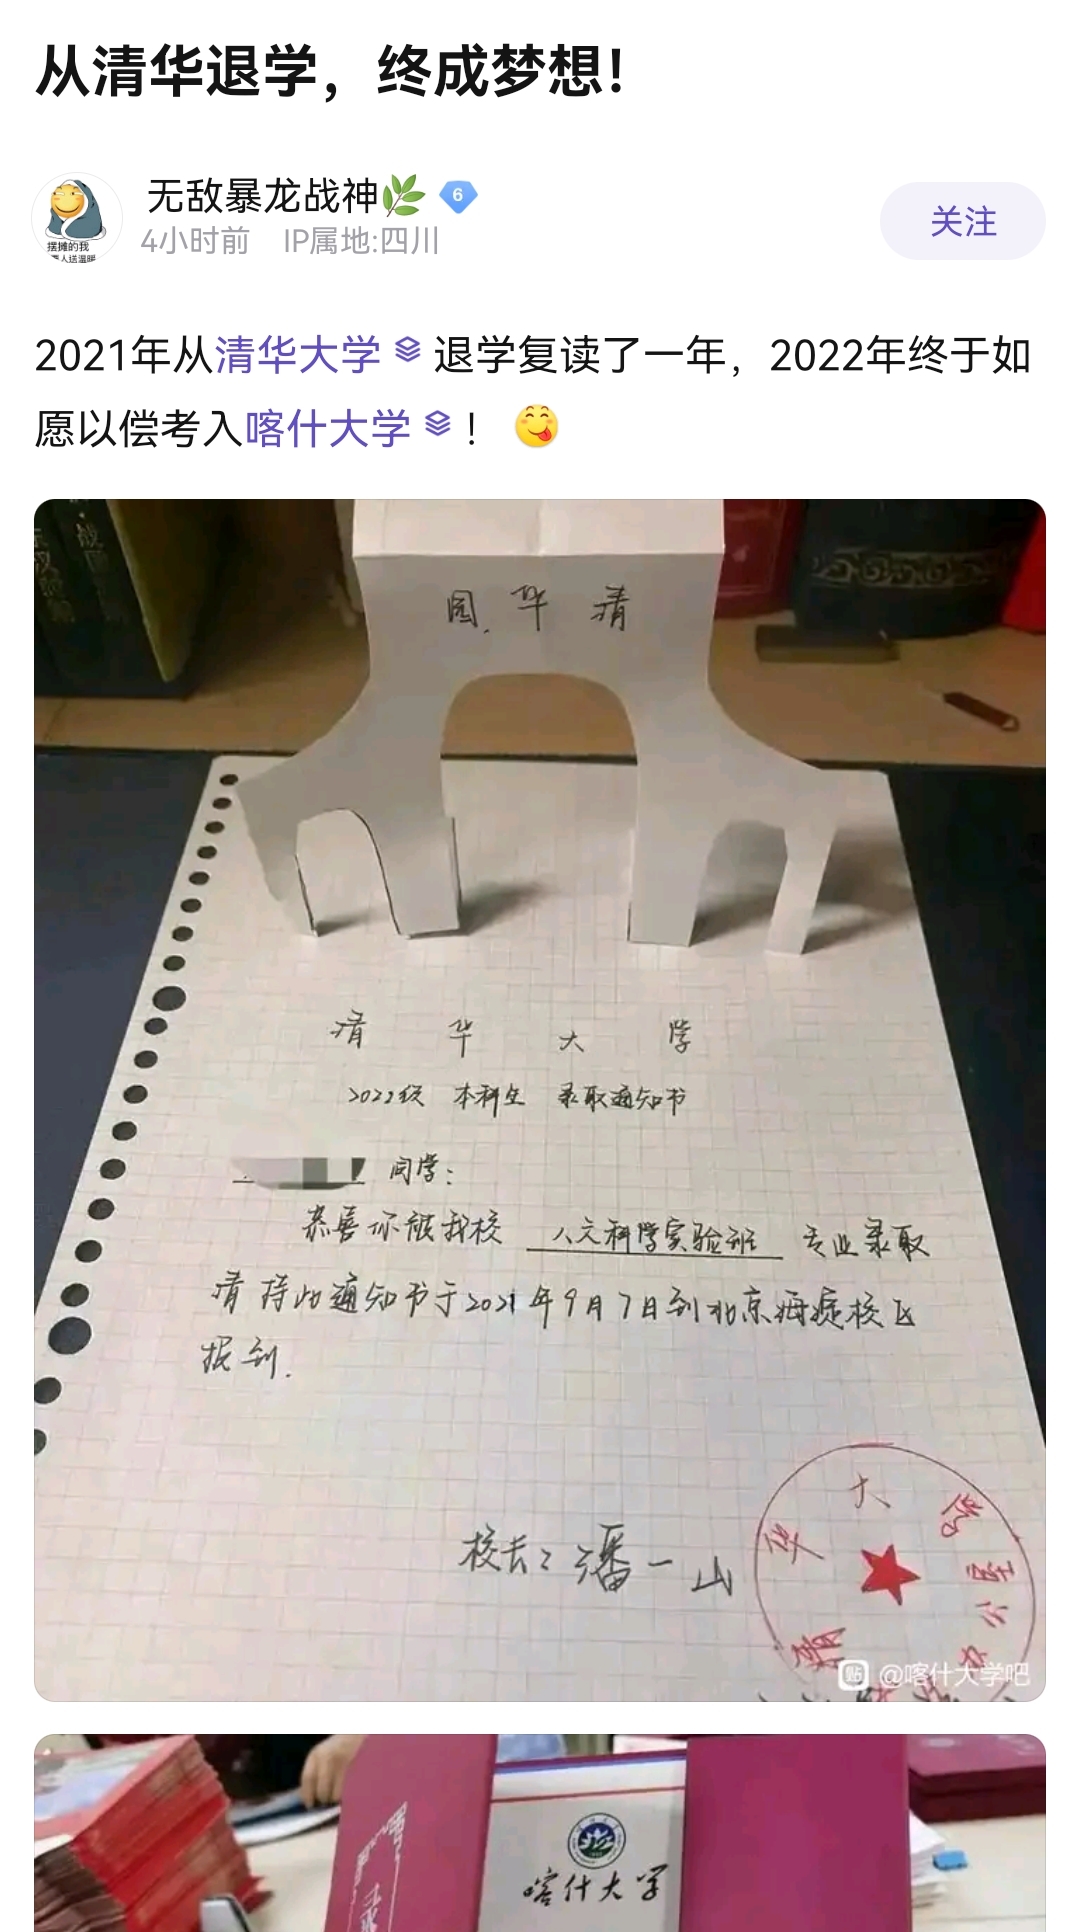 从清华退学，终成梦想！
无敌暴龙战神🌿 6
4小时前 IP属地:四川
关注
摆摊的我
2021年从清华大学 退学复读了一年，2022年终于如
愿以偿考入喀什大学 ！ 😋
园 华 清
清 华 大 学
2022级 本科生 录取通知书
同学：
恭喜你被我校 人文科学实验班 专业录取
请持此通知书于2021年9月7日到北京海淀校区
报到.
校长：潘一山
清 华 大 学 办
贴 @喀什大学吧
喀什大学